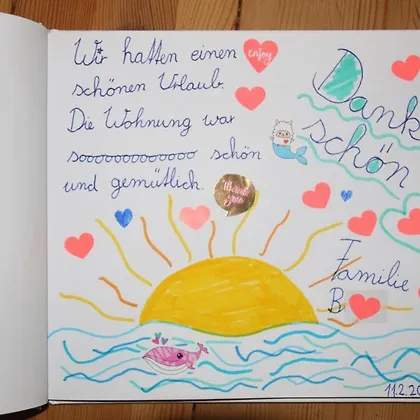 Wir hatten einen
schönen Urlaub.
Die Wohnung war
sooooooooooooo schön
und gemütlich.
enjoy
Thank
you
Danke
schön
Familie
B
11.2.20